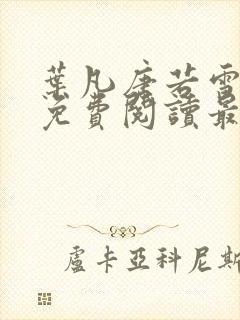 葉凡唐若雪
免費閱讀最
盧卡亞科尼斯